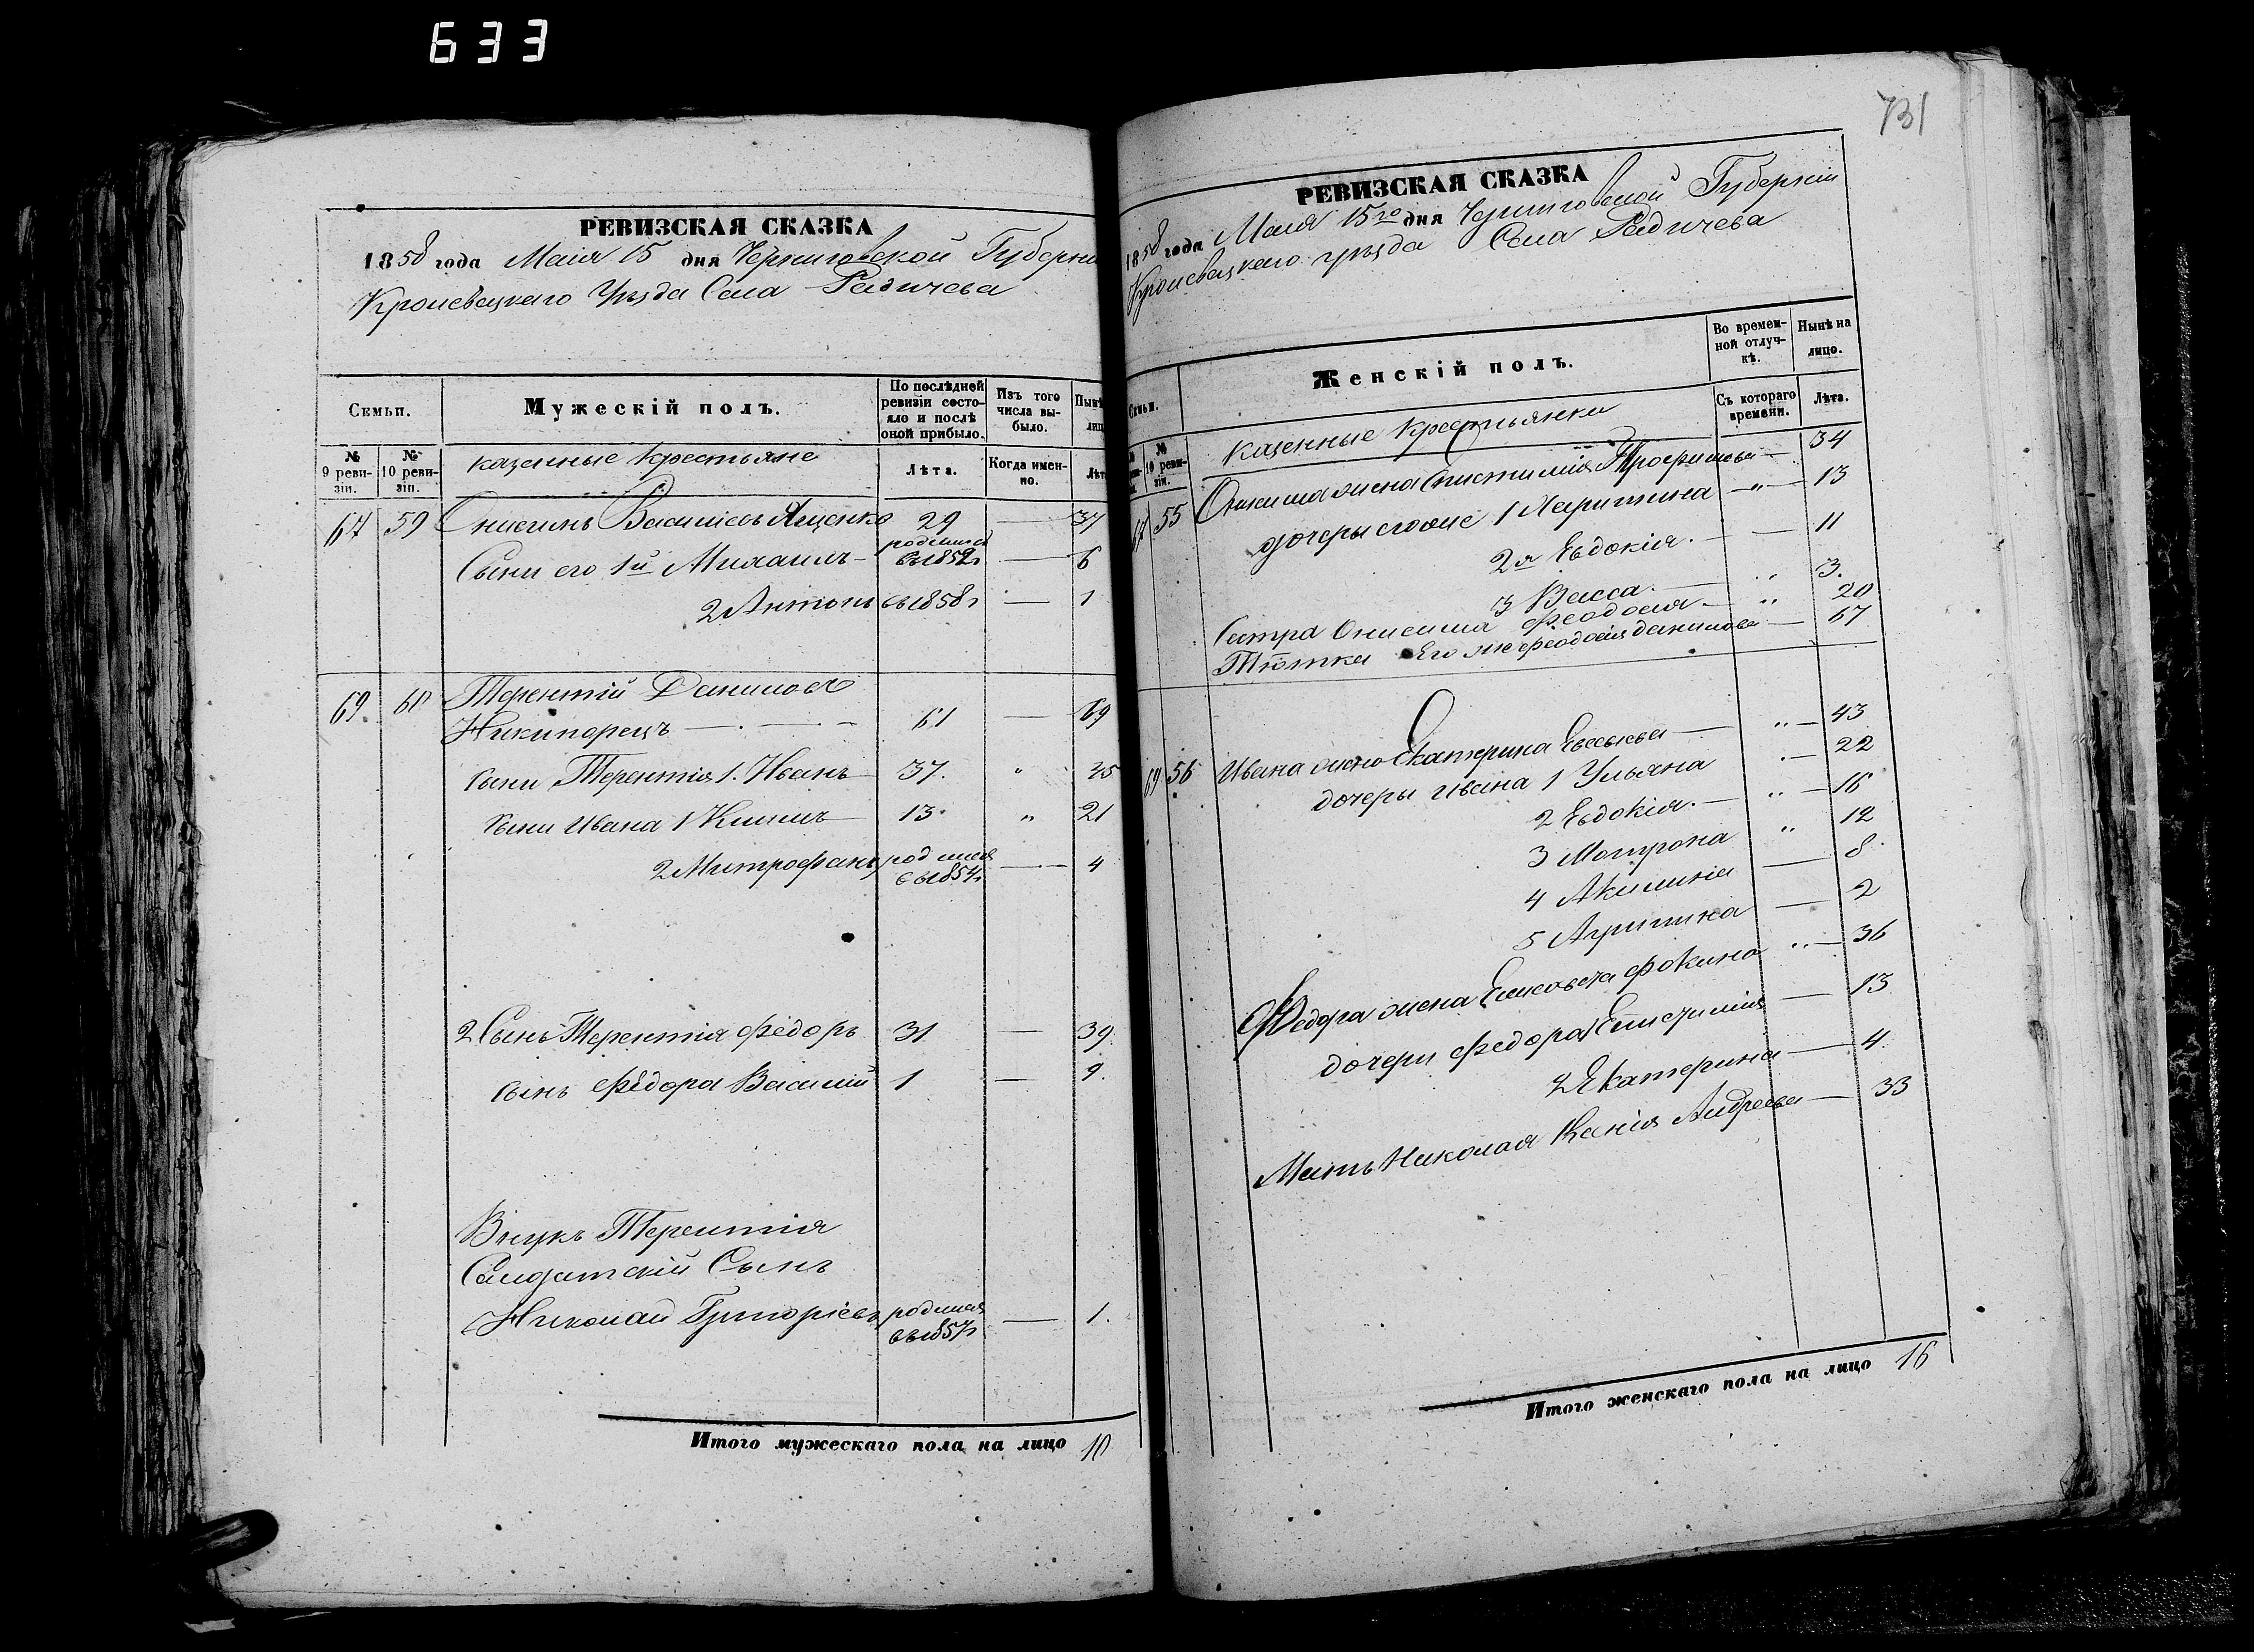 633
РЕВИЗСКАЯ СКАЗКА
1858 года Маія 15 дня Черниговской Губерни
Кролевецкаго Уѣзда Села Радичева
Семьи.
Мужескій полъ.
По послѣдней ревизіи состояло и послѣ оной прибыло.
Изъ того числа выбыло.
Нынѣ
лиц
№ 9 ревизіи.
№ 10 ревизіи.
казенные крестьяне
Лѣта.
Когда именно.
Лѣт
67 59 Онисимъ Васильевъ Ященко 29 — 37
Сыни его 1й Михаилъ — родился въ 1852г — 6
2 Антонъ въ 1858г — 1
69 60 Терентій Даниловъ
Никипорецъ — 61 — 69
сыни Терентія 1. Иванъ 37. " 45
сыни Ивана 1 Климъ 13. " 21
2 Митрофанъ родился въ 1854г — 4
2 Сынъ Терентія Федоръ 31 — 39.
сынъ Федора Василій 1 — 9.
Внукъ Терентія
Салдатскій Сынъ
Николай Григоріевъ родился въ 1857г — 1.
Итого мужескаго пола на лицо 10
731
РЕВИЗСКАЯ СКАЗКА
1858 года Маія 15го дня Черниговской Губерніи
Кролевецкаго уѣзда Села Радичева
Семьи.
Женскій полъ.
Во временной отлучкѣ.
Нынѣ на лицо.
№ 10 ревизіи.
казенные крестьянки
Съ котораго времени.
Лѣта.
67 55 Онисима жена Трофимова — 34
дочеры его 1 — " — 13
2я Евдокія. — — 11
3 Васса. — " 3.
Сестра Онисима Феодосія — " 20
Тіотка Его же феодосія данилова — 67
69 56 Ивана жена Екатерина — " — 43
дочеры ивана 1 Ульяна . — 22
2 Евдокія. — " — 16
3 Мотрона " 12
4 Акилина — 8.
5 Агрипина — 2
Федора жена Елисавета фокина " — 36
дочери федора 1 — 13
2 Екатерина — 4
Мать Николая Ксенія Андреева — 33
Итого женскаго пола на лицо 16